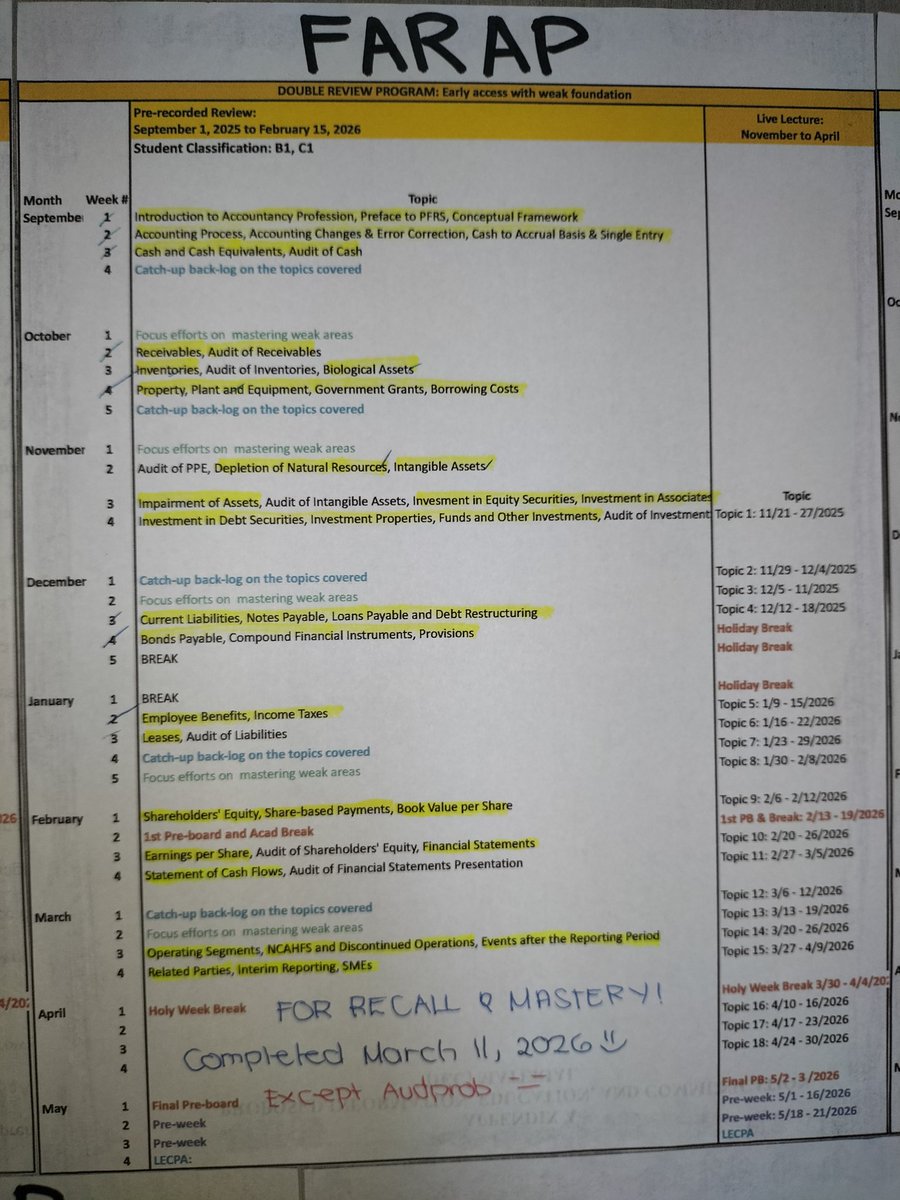 FARAP
DOUBLE REVIEW PROGRAM: Early access with weak foundation
Pre-recorded Review:
September 1, 2025 to February 15, 2026
Student Classification: B1, C1
Live Lecture:
November to April
Month Week # Topic
Septembe 1 Introduction to Accountancy Profession, Preface to PFRS, Conceptual Framework
2 Accounting Process, Accounting Changes & Error Correction, Cash to Accrual Basis & Single Entry
3 Cash and Cash Equivalents, Audit of Cash
4 Catch-up back-log on the topics covered
October 1 Focus efforts on mastering weak areas
2 Receivables, Audit of Receivables
3 Inventories, Audit of Inventories, Biological Assets
4 Property, Plant and Equipment, Government Grants, Borrowing Costs
5 Catch-up back-log on the topics covered
November 1 Focus efforts on mastering weak areas
2 Audit of PPE, Depletion of Natural Resources, Intangible Assets
3 Impairment of Assets, Audit of Intangible Assets, Invesment in Equity Securities, Investment in Associates Topic
4 Investment in Debt Securities, Investment Properties, Funds and Other Investments, Audit of Investment Topic 1: 11/21 - 27/2025
December 1 Catch-up back-log on the topics covered Topic 2: 11/29 - 12/4/2025
2 Focus efforts on mastering weak areas Topic 3: 12/5 - 11/2025
3 Current Liabilities, Notes Payable, Loans Payable and Debt Restructuring Topic 4: 12/12 - 18/2025
4 Bonds Payable, Compound Financial Instruments, Provisions Holiday Break
5 BREAK Holiday Break
January 1 BREAK Holiday Break
2 Employee Benefits, Income Taxes Topic 5: 1/9 - 15/2026
3 Leases, Audit of Liabilities Topic 6: 1/16 - 22/2026
4 Catch-up back-log on the topics covered Topic 7: 1/23 - 29/2026
5 Focus efforts on mastering weak areas Topic 8: 1/30 - 2/8/2026
February 1 Shareholders' Equity, Share-based Payments, Book Value per Share Topic 9: 2/6 - 2/12/2026
2 1st Pre-board and Acad Break 1st PB & Break: 2/13 - 19/2026
3 Earnings per Share, Audit of Shareholders' Equity, Financial Statements Topic 10: 2/20 - 26/2026
4 Statement of Cash Flows, Audit of Financial Statements Presentation Topic 11: 2/27 - 3/5/2026
March 1 Catch-up back-log on the topics covered Topic 12: 3/6 - 12/2026
2 Focus efforts on mastering weak areas Topic 13: 3/13 - 19/2026
3 Operating Segments, NCAHFS and Discontinued Operations, Events after the Reporting Period Topic 14: 3/20 - 26/2026
4 Related Parties, Interim Reporting, SMEs Topic 15: 3/27 - 4/9/2026
April 1 Holy Week Break FOR RECALL & MASTERY! Holy Week Break 3/30 - 4/4/202
2 Topic 16: 4/10 - 16/2026
3 Completed March 11, 2026 Topic 17: 4/17 - 23/2026
4 Topic 18: 4/24 - 30/2026
Except Audprob
May 1 Final Pre-board Final PB: 5/2 - 3 /2026
2 Pre-week Pre-week: 5/1 - 16/2026
3 Pre-week Pre-week: 5/18 - 21/2026
4 LECPA: LECPA